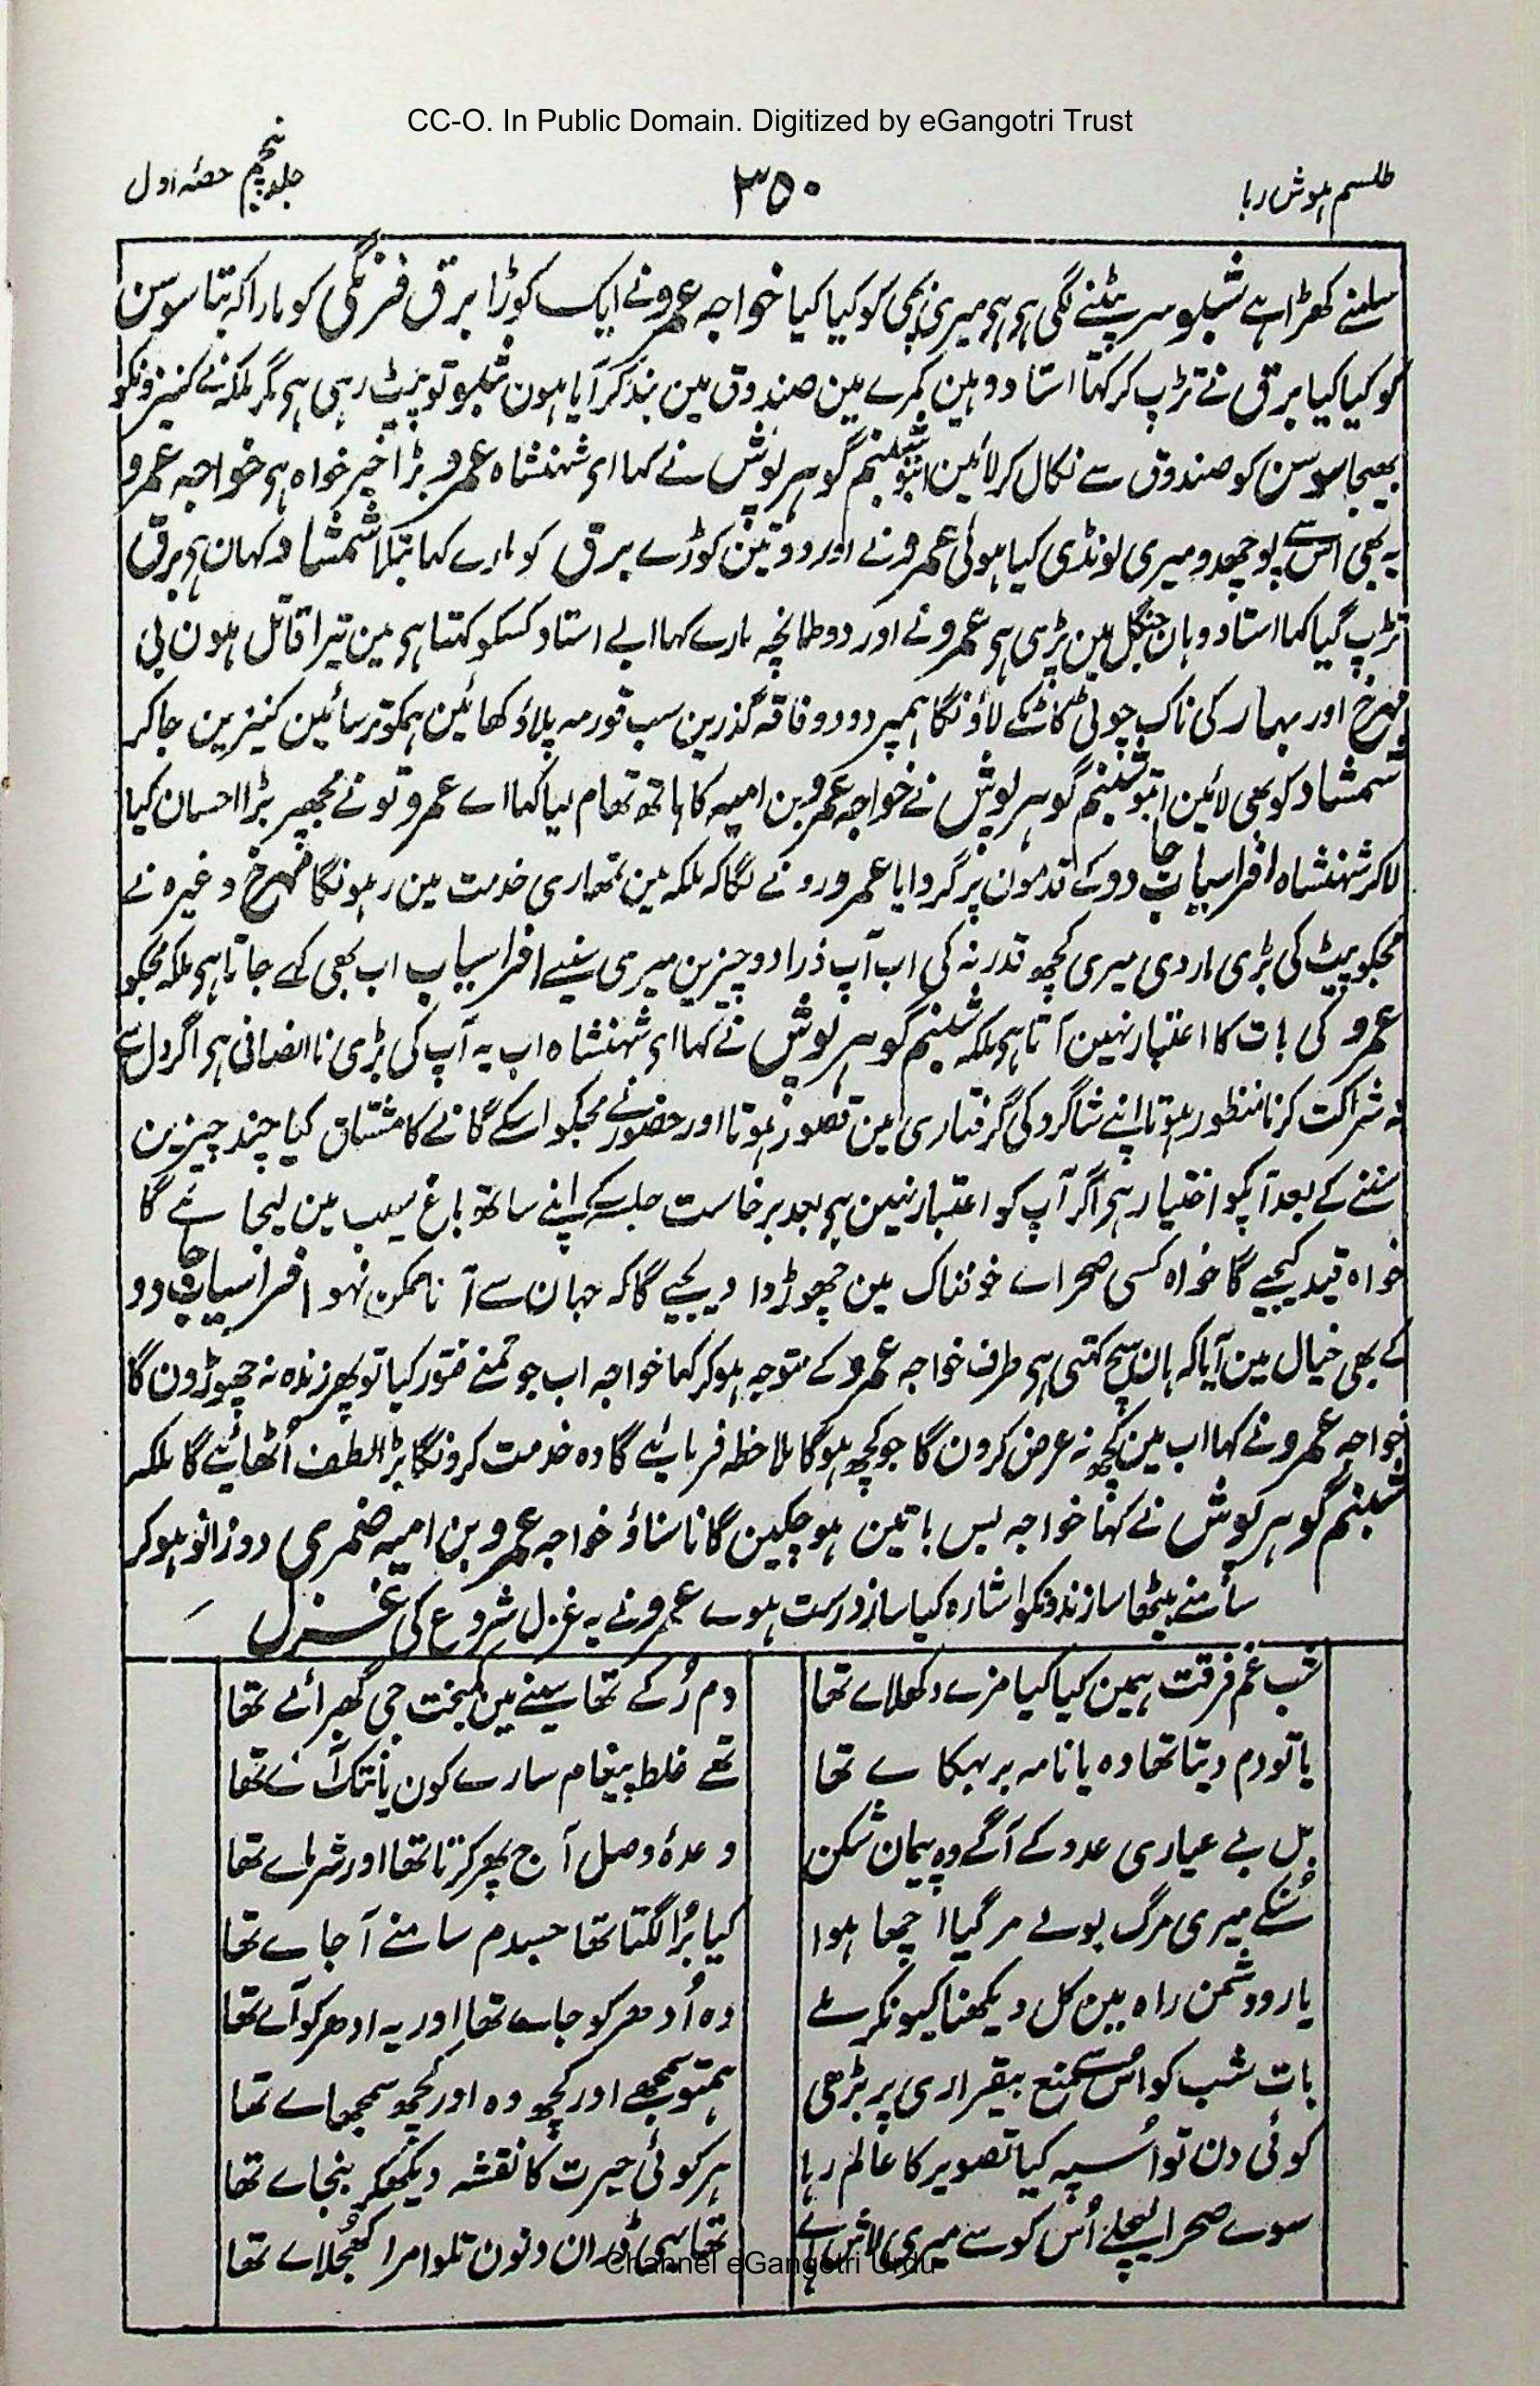 CC-O. In Public Domain. Digitized by eGangotri Trust
طلسم ہوش ربا
۳۵۰
جلد پنجم حصۂ اول
سامنے کھڑا ہے شبلو سر پیٹنے لگی ہی ہی میری بچی کو کیا کیا خواجہ عمرو نے ایک کوڑا برق فرنگی کو مارا کہ بتا سوسن
کو کیا کیا برق نے تڑپ کر کہا استاد وہین کمرے مین صندوق مین بند کر آیا ہون شبلو تو پیٹ رہی ہی مگر ملکہ نے کنیزونکو
بھیجا سوسن کو صندوق سے نکال کر لائین اتبو شبنم گوہر پوش نے کہا ای شہنشاہ عمرو بڑا خیر خواہ ہی خواجہ عمرو
یہ بھی اس سے پوچھدو میری لونڈی کیا ہوئی عمرو نے اور دو تین کوڑے برق کو مارے کہا بتلا شمشاد کہان ہی برق
تڑپ گیا کہا استاد وہان جنگل مین پڑی ہی عمرو نے اور دو طمانچہ مارے کہا ابے استاد کسکو کہتا ہی مین تیرا قاتل ہون بی
مہرخ اور بہار کی ناک چوٹی کاٹکے لاؤنگا ہمپر دو دو فاقہ گذرین سب قورمہ پلاؤ کھائین ہمکو ترسائین کنیزین جاکر
شمشاد کو بھی لائین اتبو شبنم گوہر پوش نے خواجہ عمرو بن امیہ کا ہاتھ تھام لیا کہا اے عمرو تو نے مجھپر بڑا احسان کیا
لاکر شہنشاہ افراسیاب جادو کے قدمون پر گروایا عمرو رونے لگا کہ ملکہ مین تمھاری خدمت مین رہونگا مہرخ وغیرہ نے
مجکو پیٹ کی بڑی مار دی میری کچھ قدر نہ کی اب آپ ذرا دو چیزین میری سنیے افراسیاب اب بھی کہے جاتا ہی ملکہ مجکو
عمرو کی بات کا اعتبار نہین آتا ہی ملکہ شبنم گوہر پوش نے کہا ای شہنشاہ اب یہ آپ کی بڑی نا انصافی ہی اگر دل سے
نہ شراکت کرنا منظور ہوتا اپنے شاگرد کی گرفتاری مین قصور نہوتا اور حضور نے مجکو اسکے گانے کا مشتاق کیا چند چیزین
سننے کے بعد آپکو اختیار ہی اگر آپ کو اعتبار نہین ہی بعد برخاست جلسہ کے اپنے ساتھ باغ سیب مین لیجائے گا
خواہ قید کیجیے گا خواہ کسی صحراے خوفناک مین چھوڑوا دیجیے گا کہ جہان سے آنا ممکن نہو افراسیاب جادو
کے بھی خیال مین آیا کہ ہان سچ کہتی ہی طرف خواجہ عمرو کے متوجہ ہوکر کہا خواجہ اب جو تمنے فتور کیا تو پھر زندہ نہ چھوڑون گا
خواجہ عمرو نے کہا اب مین کچھ نہ عرض کرون گا جو کچھ ہوگا ملاحظہ فرمائیے گا وہ خدمت کرونگا بڑا لطف اُٹھائیے گا ملکہ
شبنم گوہر پوش نے کہا خواجہ بس باتین ہو چکین گانا سناؤ خواجہ عمرو بن امیہ ضمری دوزانو ہوکر
سامنے بیٹھا سازندونکو اشارہ کیا ساز درست ہوے عمرو نے یہ غزل شروع کی غزل
شب غم فرقت ہمین کیا کیا مزے دکھلاے تھا
دم رُکے تھا سینے مین کمبخت جی گھبرائے تھا
یا تو دم دیتا تھا وہ یا نامہ بر بہکاے تھا
تھے غلط پیغام سارے کون یا نتک آے تھا
بل بے عیاری عدو کے آگے وہ پیمان شکن
وعدۂ وصل آج پھر کرتا تھا اور شرماے تھا
سُنکے میری مرگ بولے مر گیا اچھا ہوا
کیا بُرا لگتا تھا جسدم سامنے آجاے تھا
یار و دشمن راہ مین کل دیکھنا کیونکر ملے
وہ اُدھر کو جاے تھا اور یہ ادھر کو آے تھا
بات شب کو اُس سے منع بیقراری پر بڑھی
ہمتو سمجھے اور کچھ وہ اور کچھ سمجھاے تھا
کوئی دن تو اُسپہ کیا تصویر کا عالم رہا
ہر کوئی حیرت کا نقشہ دیکھکر بنجاے تھا
سوے صحرا لیچلے اُس کو سے میری لاش ہاے
تھا یہی ڈر ان دنون تلوا مرا کھجلاے تھا
Channel eGangotri Urdu